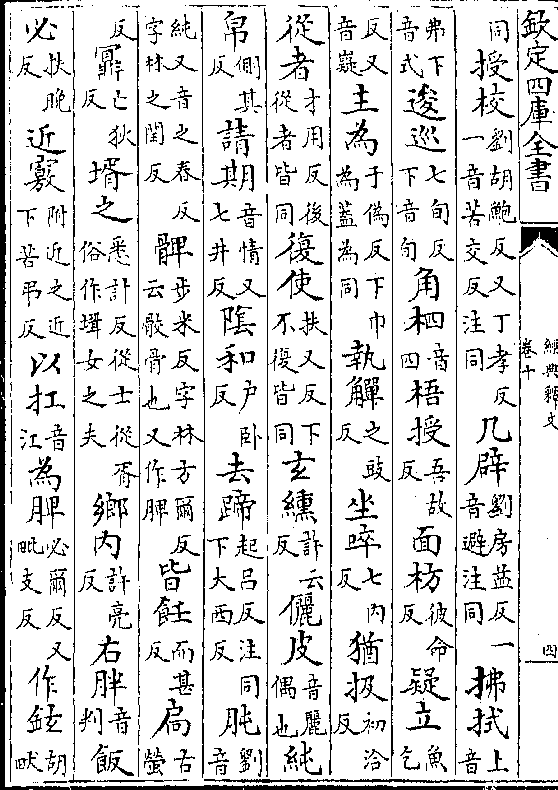 欽定四庫全書
經典釋文
卷十
四
同授校劉胡鮑反又丁孝反一音苦交反注同几辟劉房益反一音避注同拂拭上音
弗下音式逡巡七旬反下音旬角柶音四梧授吾故反面枋彼命反疑立魚乞
反又音嶷主為于偽反下巾為蓋為同執觶之豉反坐啐七内反猶扱初洽反
從者才用反後從者皆同復使扶又反下不復皆同玄纁許云反儷皮音麗偶也純
帛側其反請期音情又七井反隂和户卧反去蹄起吕反注同下大西反肫劉音
純又音之春反字林之閏反髀步米反字林方爾反云骰骨也又作脾皆飪而甚反扃古螢
反鼏亡狄反壻之悉計反從士從胥俗作揟女之夫鄉内許亮反右胖音判飯
必扶晚反近竅附近之近下苦弔反以扛音江為脾必爾反又毗支反作鉉胡畎